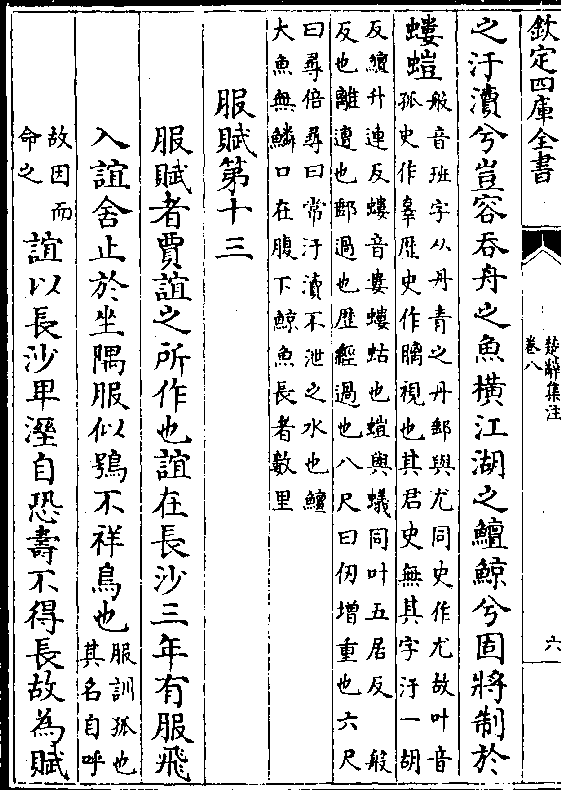 欽定四庫全書
楚辭集注
卷八
六
之汙瀆兮豈容吞舟之魚橫江湖之鱣鯨兮固將制於
螻螘
般音班字从丹青之丹郵與尤同史作尤故叶音
孤史作辜歴史作瞝視也其君史無其字汙一胡
反續升連反螻音婁螻蛄也螘與蟻同叶五居反 般
反也離遭也郵過也歴經過也八尺曰仞增重也六尺
曰尋倍尋曰常汙瀆不泄之水也鱣
大魚無鱗口在腹下鯨魚長者數里
服賦第十三
服賦者賈誼之所作也誼在長沙三年有服飛
入誼舍止於坐隅服似鴞不祥鳥也
服訓孤也
其名自呼
故因而
命之
誼以長沙卑溼自恐壽不得長故為賦